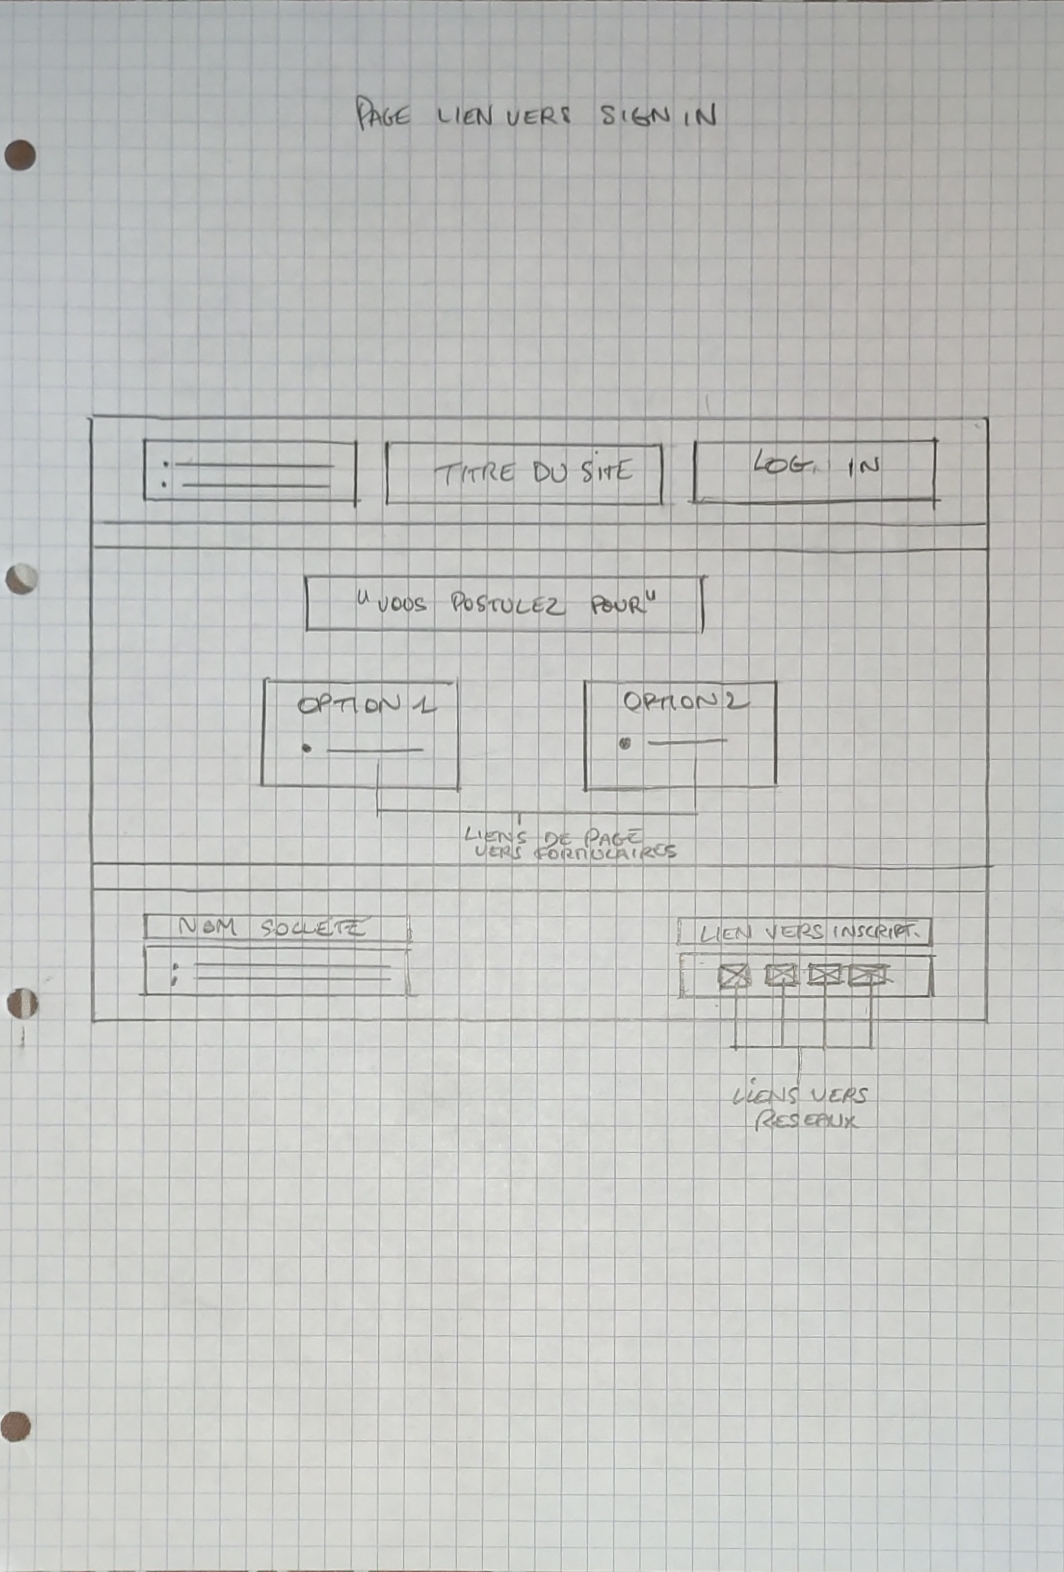 PAGE LIEN VERS SIGN IN
TITRE DU SITE
LOG IN
"VOUS POSTULEZ POUR"
OPTION 1
OPTION 2
LIENS DE PAGE
VERS FORMULAIRES
NOM SOCIETE
LIEN VERS INSCRIPT.
LIENS VERS
RESEAUX